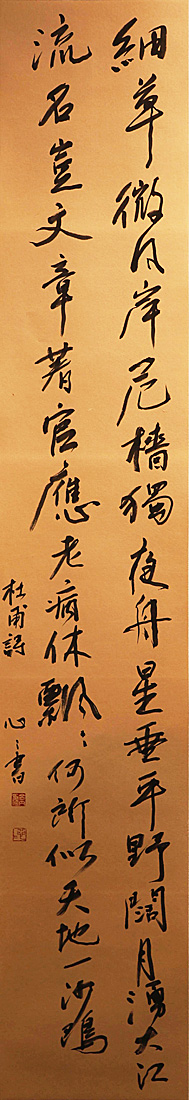 細草微風岸危檣獨夜舟星垂平野闊月湧大江
流名豈文章著官應老病休飄〻何所似天地一沙鷗
杜甫詩 心〻書